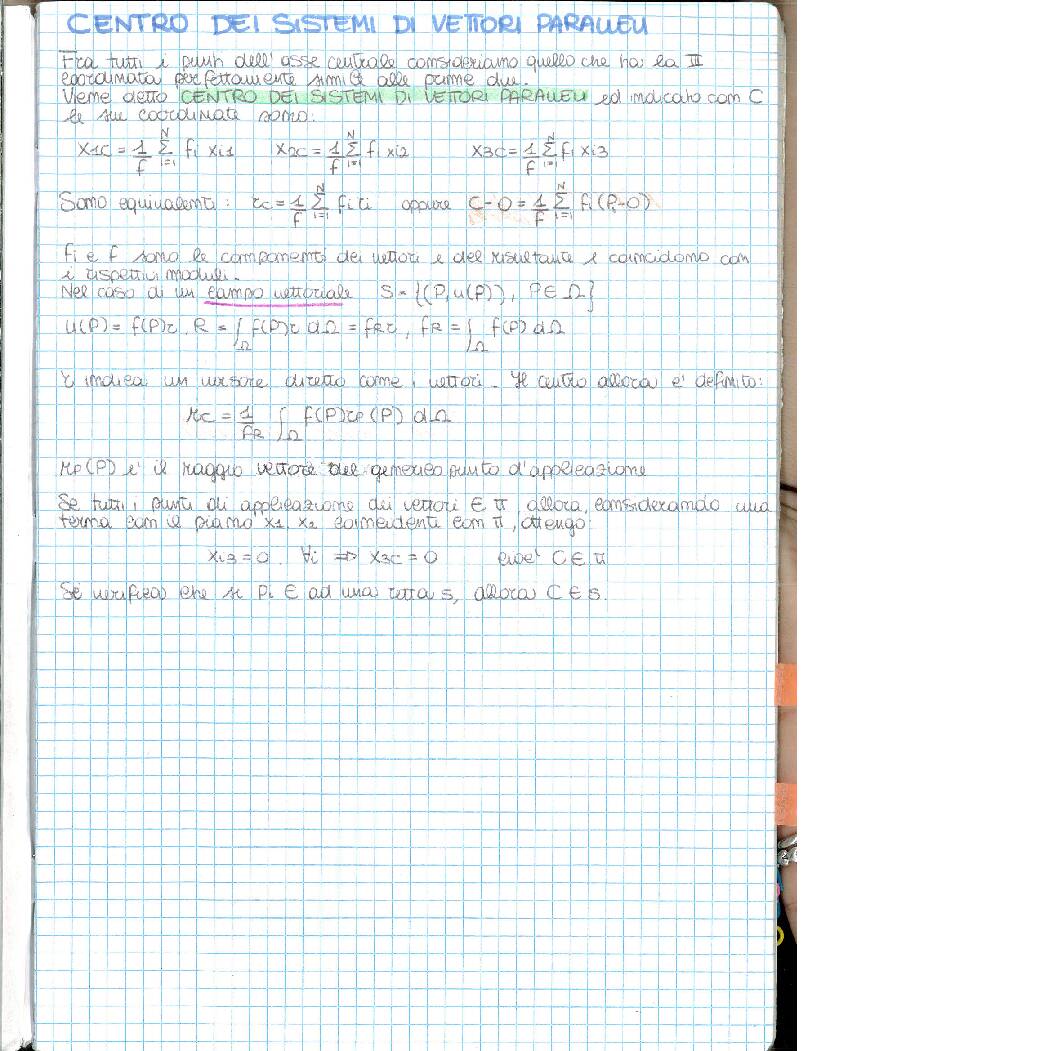 CENTRO DEI SISTEMI DI VETTORI PARALLELI
Fra tutti i punti dell'asse centrale consideriamo quello che ha la III
coordinata perfettamente simile alle prime due.
Viene detto CENTRO DEI SISTEMI DI VETTORI PARALLELI ed indicato con C
le sue coordinate sono:
x1c = 1/f Σ_{i=1}^{N} fi xi1   x2c = 1/f Σ_{i=1}^{N} fi xi2   x3c = 1/f Σ_{i=1}^{N} fi xi3
Sono equivalenti: rc = 1/f Σ_{i=1}^{N} fi ri   oppure   C-O = 1/f Σ_{i=1}^{N} fi (Pi-O)
fi e f sono le componenti dei vettori e del risultante e coincidono con
i rispettivi moduli.
Nel caso di un campo vettoriale S = {(P, u(P)), P ∈ Ω}
u(P) = f(P)r, R = ∫_Ω f(P)r dΩ = fR r, fR = ∫_Ω f(P) dΩ
r indica un versore diretto come i vettori. Il centro allora e' definito:
rc = 1/fR ∫_Ω f(P) rp(P) dΩ
rp(P) e' il raggio vettore del generico punto d'applicazione
Se tutti i punti di applicazione dei vettori ∈ π, allora, considerando una
terna con il piano x1, x2 coincidenti con π, ottengo:
xi3 = 0 ∀i ⇒ x3c = 0   cioe' C ∈ π
Se verifica che se Pi ∈ ad una retta s, allora C ∈ s.